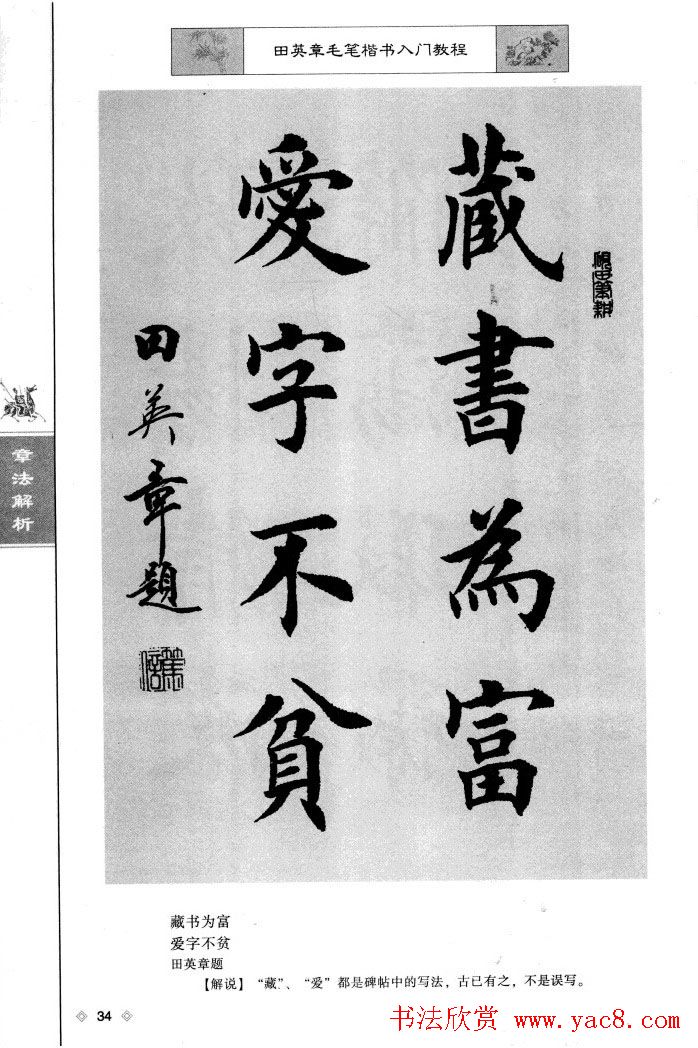 田英章毛笔楷书入门教程
藏書為富
愛字不貧
田英章題
章法解析
藏书为富
爱字不贫
田英章题
【解说】“藏”、“爱”都是碑帖中的写法，古已有之，不是误写。
34
书法欣赏 www.yac8.com